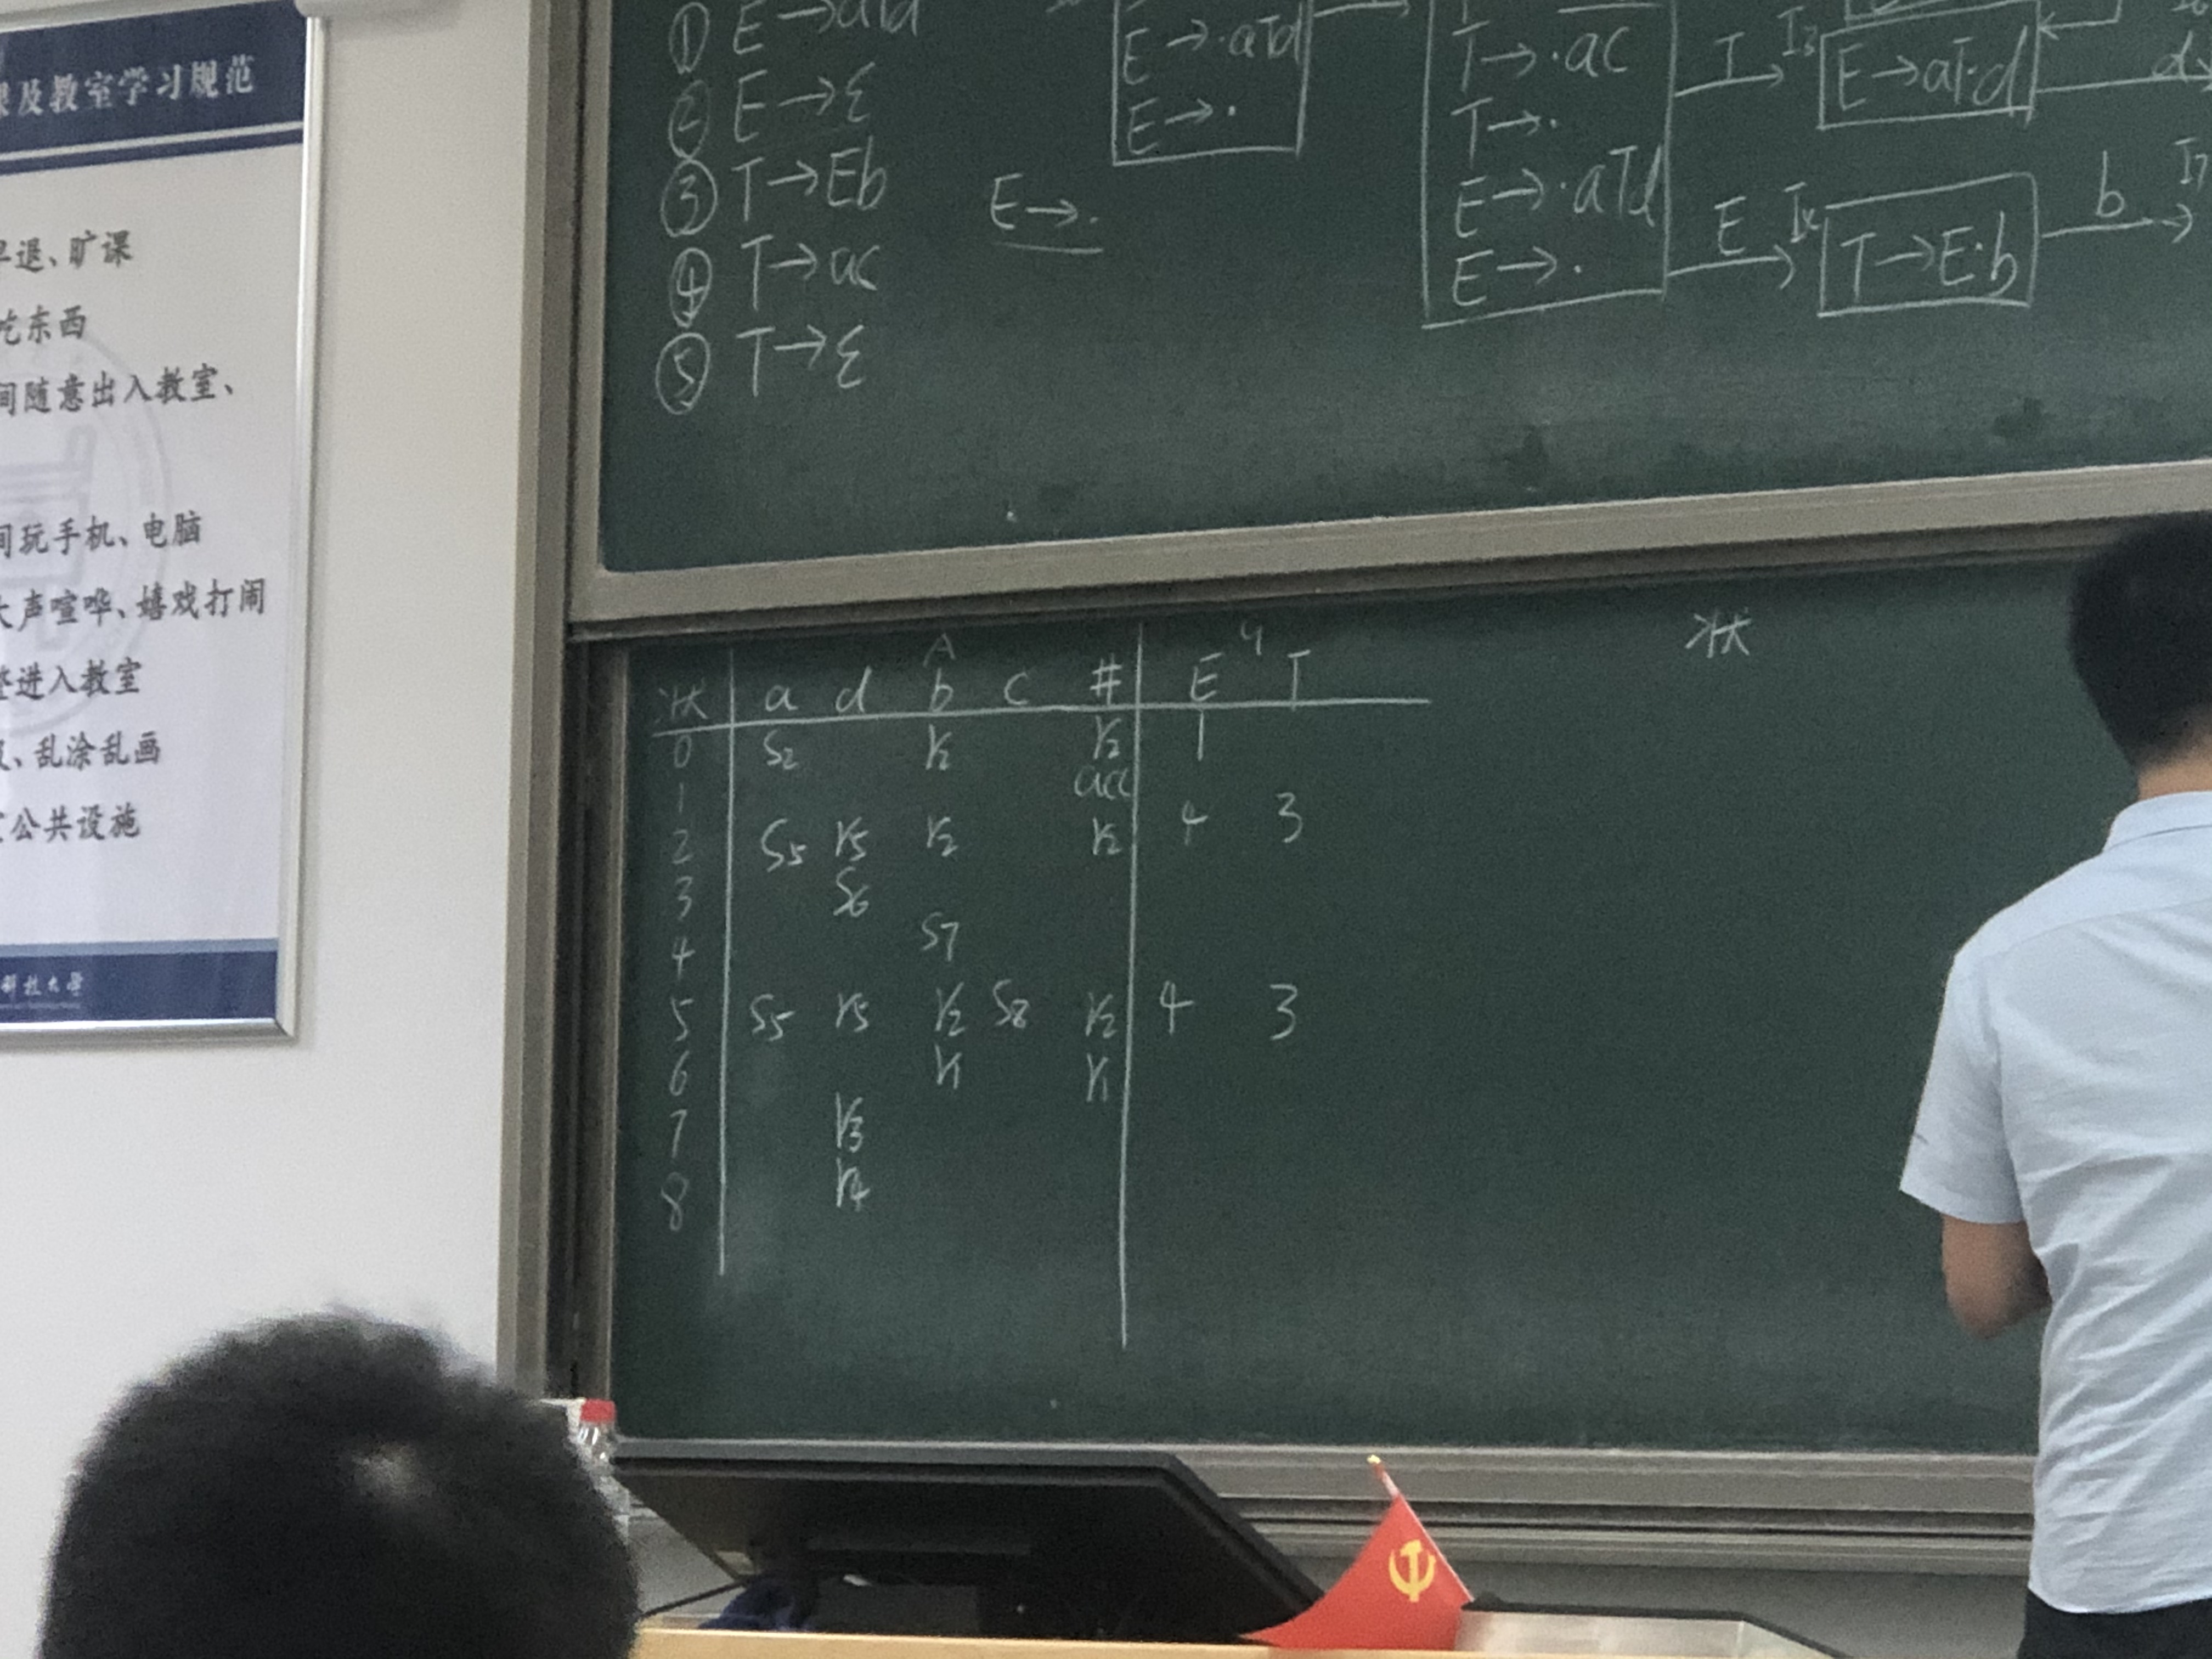 课及教室学习规范
早退、旷课
吃东西
间随意出入教室、
间玩手机、电脑
大声喧哗、嬉戏打闹
进入教室
、乱涂乱画
公共设施
科技大学
① E→aTd
② E→ε
③ T→Eb
④ T→ac
⑤ T→ε
E→·aTd
E→·
E→·
T→·ac
T→·
E→·aTd
E→·
T I3
E→aT·d
d
E I4
T→E·b
b I7
A
状 a d b c # E T
0 S2 r2 r2 1
1 acc
2 S5 r5 r2 r2 4 3
3 S6
4 S7
5 S5 r5 r2 S8 r2 4 3
6 r1 r1
7 r3
8 r4
状